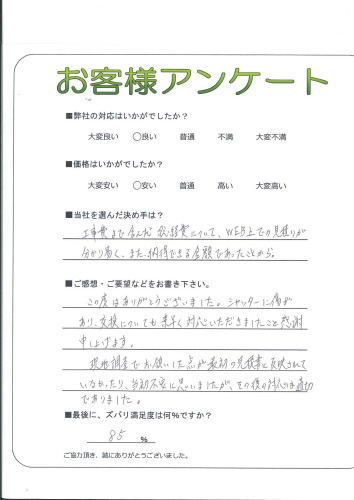 お客様アンケート
■弊社の対応はいかがでしたか?
大変良い ○良い 普通 不満 大変不満
■価格はいかがでしたか?
大変安い ○安い 普通 高い 大変高い
■当社を選んだ決め手は?
工事費まで含んだ総経費について、WEB上での見積りが
分かり易く、また、納得できる金額であったことから。
■ご感想・ご要望などをお書き下さい。
この度はありがとうございました。シャッターに傷が
あり、交換についても素早く対応いただきましたこと感謝
申し上げます。
現地調査でお願いした点が最初の見積書に反映されて
いなかったり、当初不安に思いましたが、その後の対応は適切
でありました。
■最後に、ズバリ満足度は何%ですか?
85 %
ご協力頂き、誠にありがとうございました。